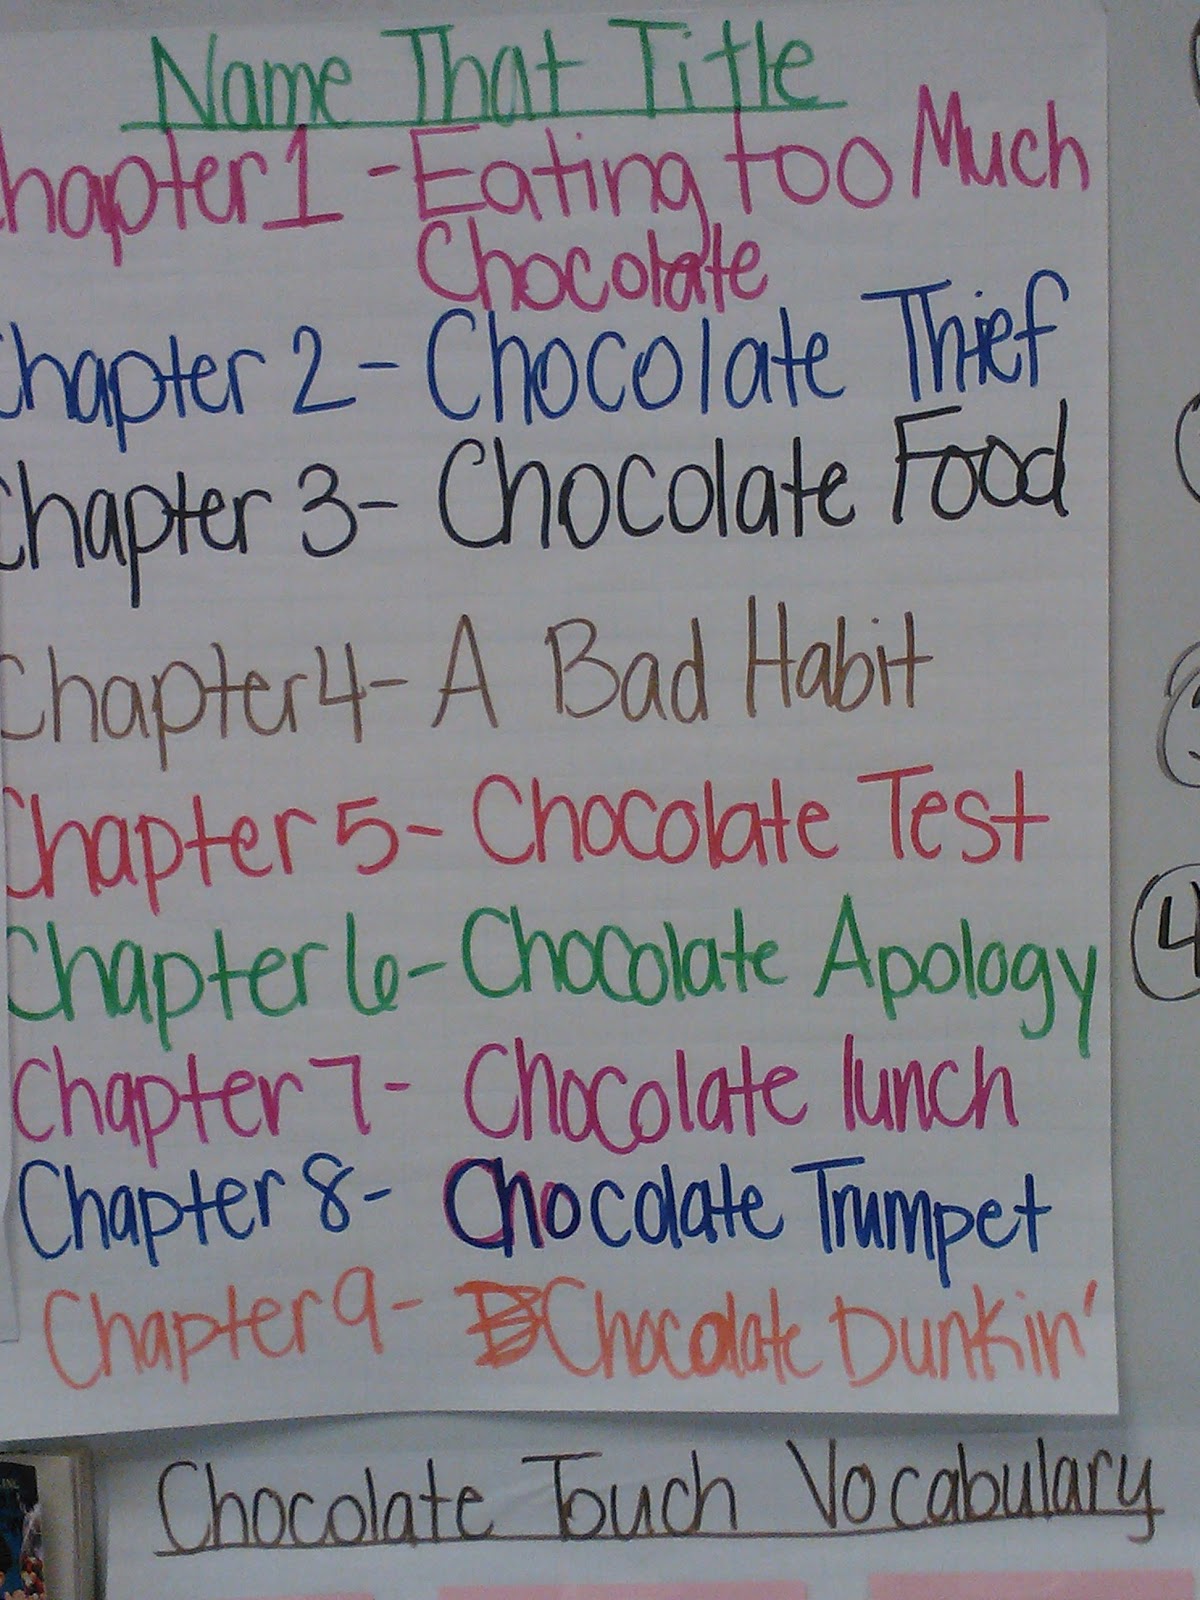 Name That Title
Chapter 1 - Eating too Much
Chocolate
Chapter 2 - Chocolate Thief
Chapter 3 - Chocolate Food
Chapter 4 - A Bad Habit
Chapter 5 - Chocolate Test
Chapter 6 - Chocolate Apology
Chapter 7 - Chocolate lunch
Chapter 8 - Chocolate Trumpet
Chapter 9 - Chocolate Dunkin'
4
Chocolate Touch Vocabulary